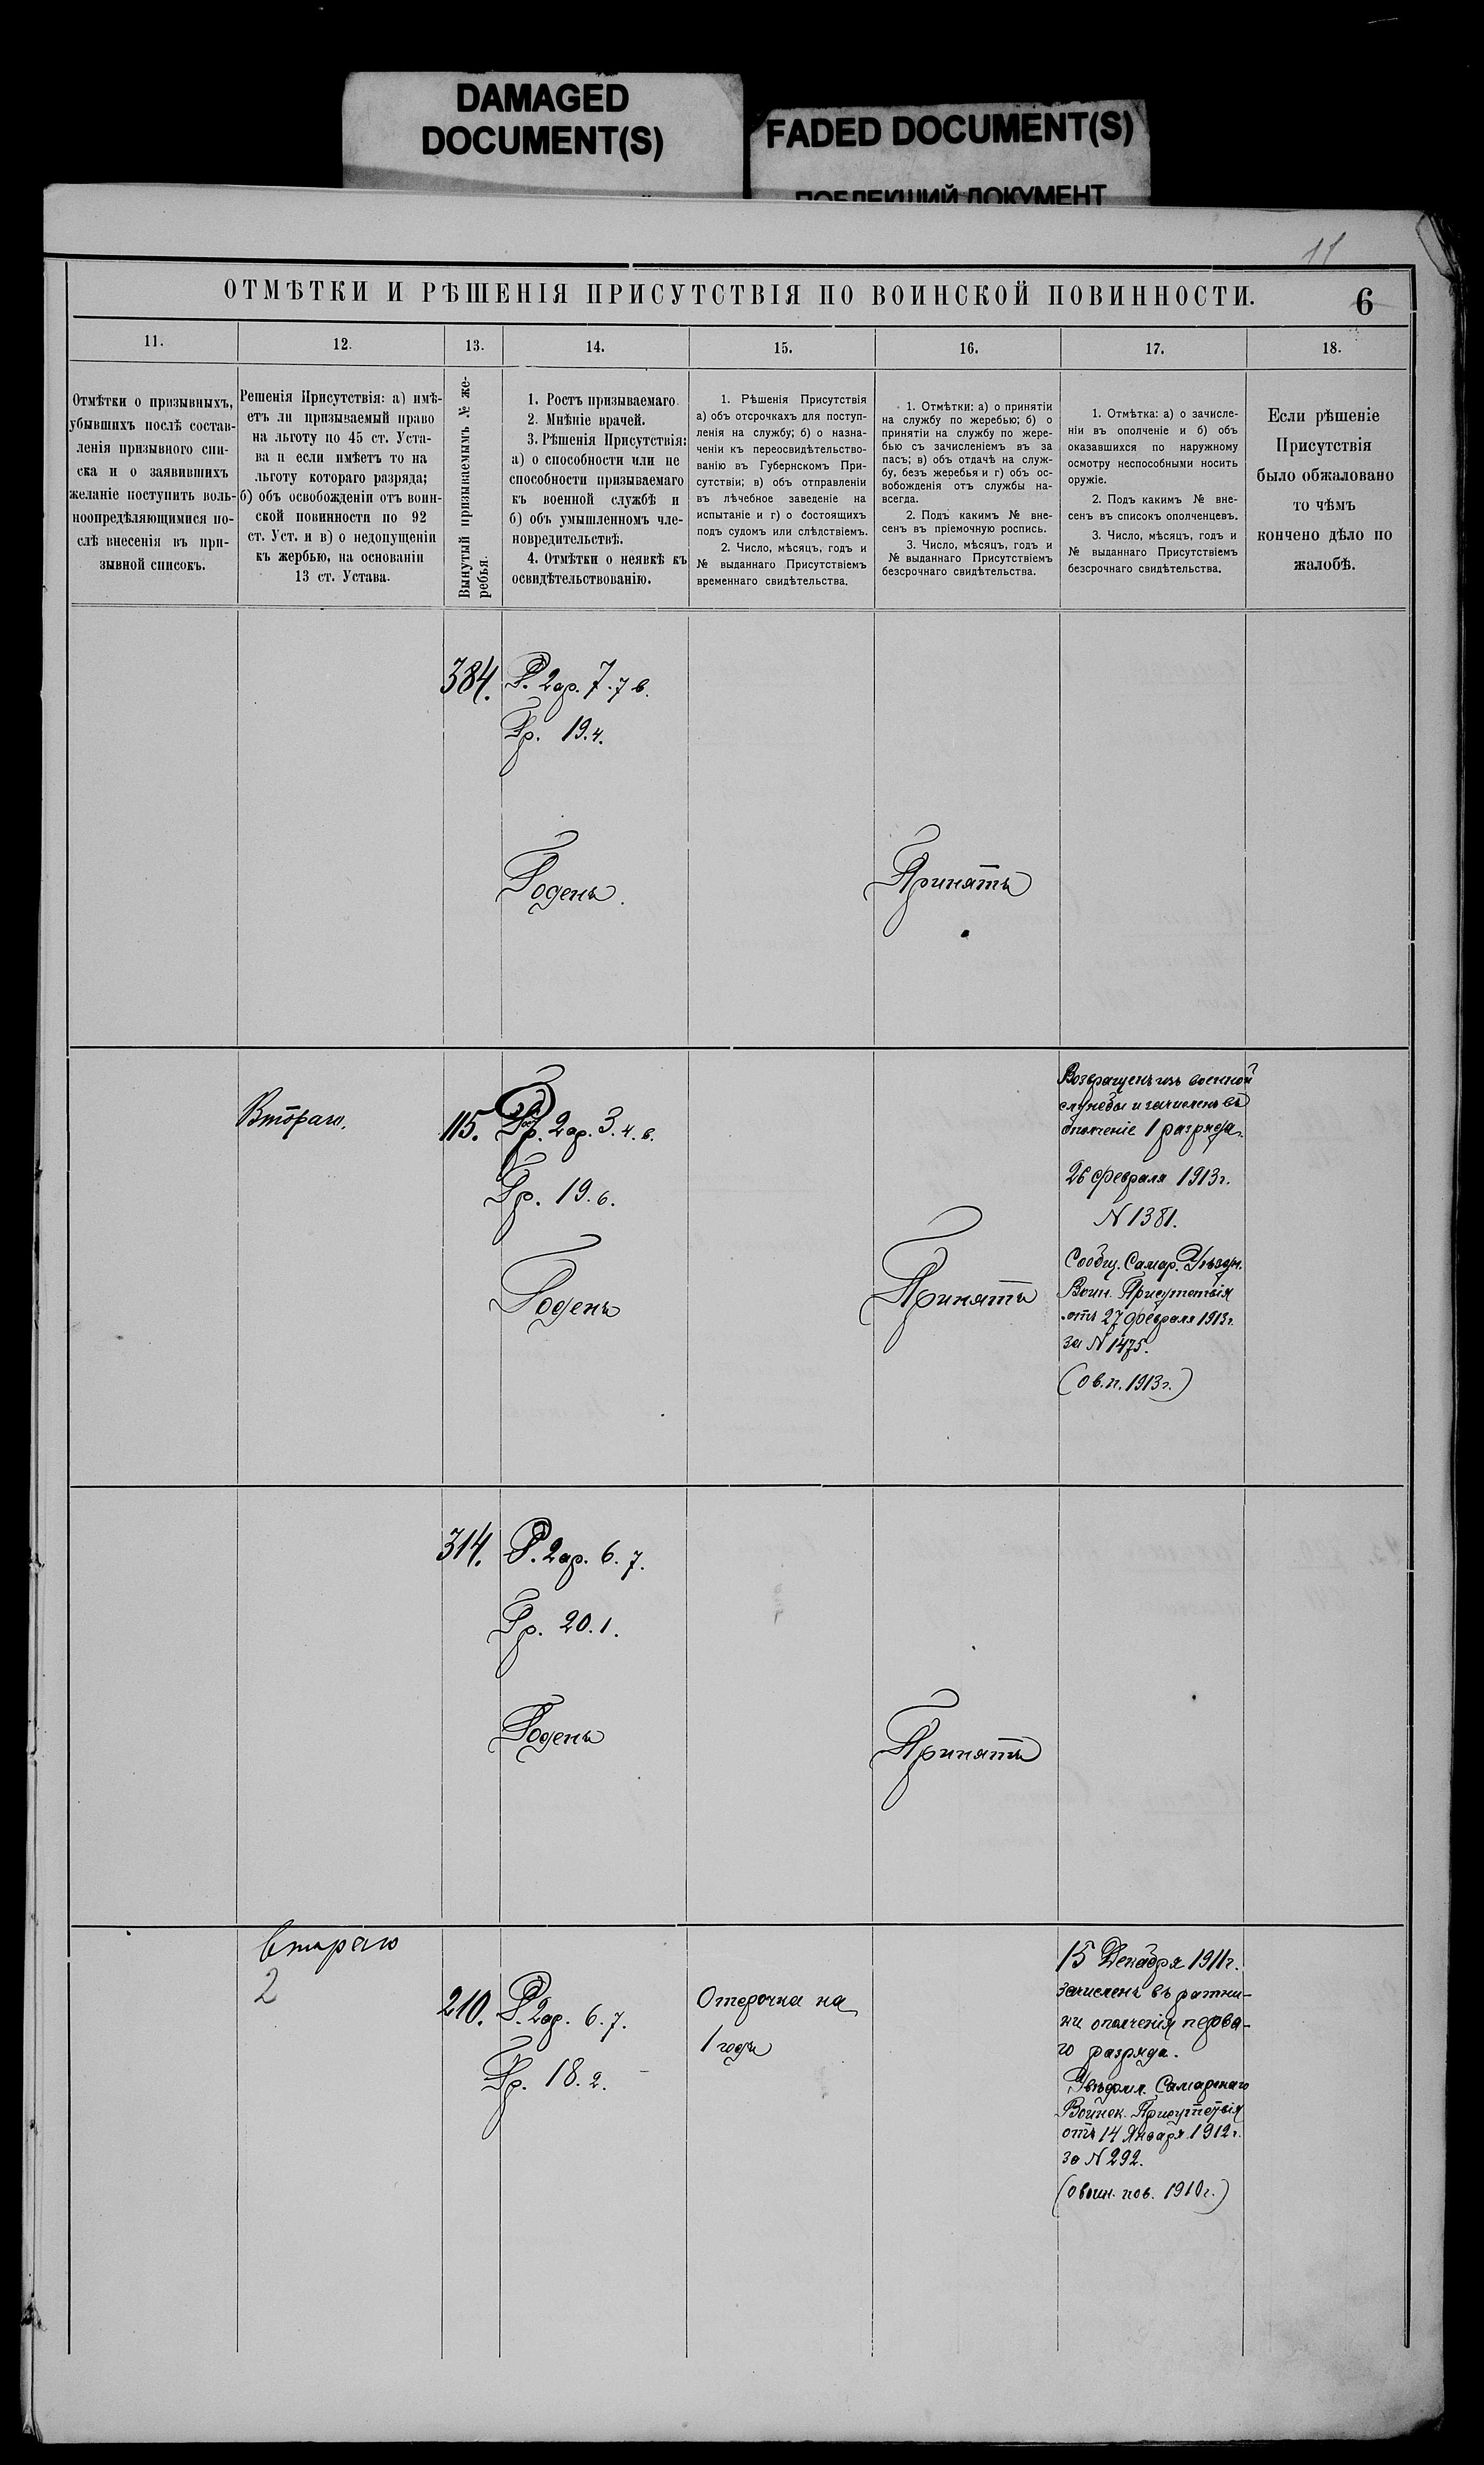 DAMAGED
DOCUMENT(S)
FADED DOCUMENT(S)
ПОБЛЕКШИЙ ДОКУМЕНТ
11
ОТМѢТКИ И РѢШЕНІЯ ПРИСУТСТВІЯ ПО ВОИНСКОЙ ПОВИННОСТИ.
6
11.
12.
13.
14.
15.
16.
17.
18.
Отмѣтки о призывныхъ,
убывшихъ послѣ состав-
ленія призывного спи-
ска и о заявившихъ
желаніе поступить воль-
ноопредѣляющимися по-
слѣ внесенія въ при-
зывной списокъ.
Решенія Присутствія: а) имѣ-
етъ ли призываемый право
на льготу по 45 ст. Уста-
ва и если имѣетъ то на
льготу котораго разряда;
б) объ освобожденіи отъ воин-
ской повинности по 92
ст. Уст. и в) о недопущеніи
къ жербью, на основаніи
13 ст. Устава.
Вынутый призываемымъ № же-
ребья.
1. Ростъ призываемаго.
2. Мнѣніе врачей.
3. Рѣшенія Присутствія:
а) о способности или не
способности призываемаго
къ военной службѣ и
б) объ умышленномъ чле-
новредительствѣ.
4. Отмѣтки о неявкѣ къ
освидѣтельствованію.
1. Рѣшенія Присутствія
а) объ отсрочкахъ для поступ-
ленія на службу; б) о назна-
ченіи къ переосвидѣтельство-
ванію въ Губернскомъ При-
сутствіи; в) объ отправленіи
въ лѣчебное заведеніе на
испытаніе и г) о состоящихъ
подъ судомъ или слѣдствіемъ.
2. Число, мѣсяцъ, годъ и
№ выданнаго Присутствіемъ
временнаго свидѣтельства.
1. Отмѣтки: а) о принятіи
на службу по жеребью; б) о
принятіи на службу по жере-
бью съ зачисленіемъ въ за
пасъ; в) объ отдачѣ на служ-
бу, безъ жеребья и г) объ ос-
вобожденія отъ службы на-
всегда.
2. Подъ какимъ № вне-
сенъ въ пріемочную роспись.
3. Число, мѣсяцъ, годъ и
№ выданнаго Присутствіемъ
безсрочнаго свидѣтельства.
1. Отмѣтка: а) о зачисле-
ніи въ ополченіе и б) объ
оказавшихся по наружному
осмотру неспособными носить
оружіе.
2. Подъ какимъ № вне-
сенъ въ списокъ ополченцевъ.
3. Число, мѣсяцъ, годъ и
№ выданнаго Присутствіемъ
безсрочнаго свидѣтельства.
Если рѣшеніе
Присутствія
было обжаловано
то чѣмъ
кончено дѣло по
жалобѣ.
384.
Р. 2 ар. 7. 7 в.
Гр. 19.4.
Годенъ.
Принятъ
Второго.
115.
2 ар. 3. 4. в.
Гр. 19. 6.
Годенъ
Принятъ
Возвращенъ изъ военной
службы и зачисленъ въ
ополченіе 1 разряда.
26 февраля 1913 г.
N 1381.
Сообщ. Самар. Уѣздн.
Воин. Присутствія
отъ 27 февраля 1913 г.
за N 1475.
(о в. п. 1913 г.)
314.
Р. 2 ар. 6. 7.
Гр. 20. 1.
Годенъ
Принятъ
второго
2
210.
Р. 2 ар. 6. 7.
Гр. 18. 2.
Отсрочка на
1 годъ
15 Декабря 1911 г.
зачисленъ въ ратни-
ки ополченія перва-
го разряда.
Увѣдомл. Самарскаго
Воинск. Присутствія
отъ 14 Января 1912 г.
за N 292.
(о воин. пов. 1910 г.)